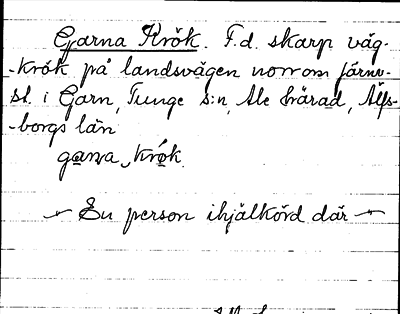 Garna Krök. F.d. skarp väg-
-krök på landsvägen norrom järnv.-
st. i Garn, Tunge s:n, Ale härad, Älfs-
-borgs län
garna krók
— En person ihjälkörd där —